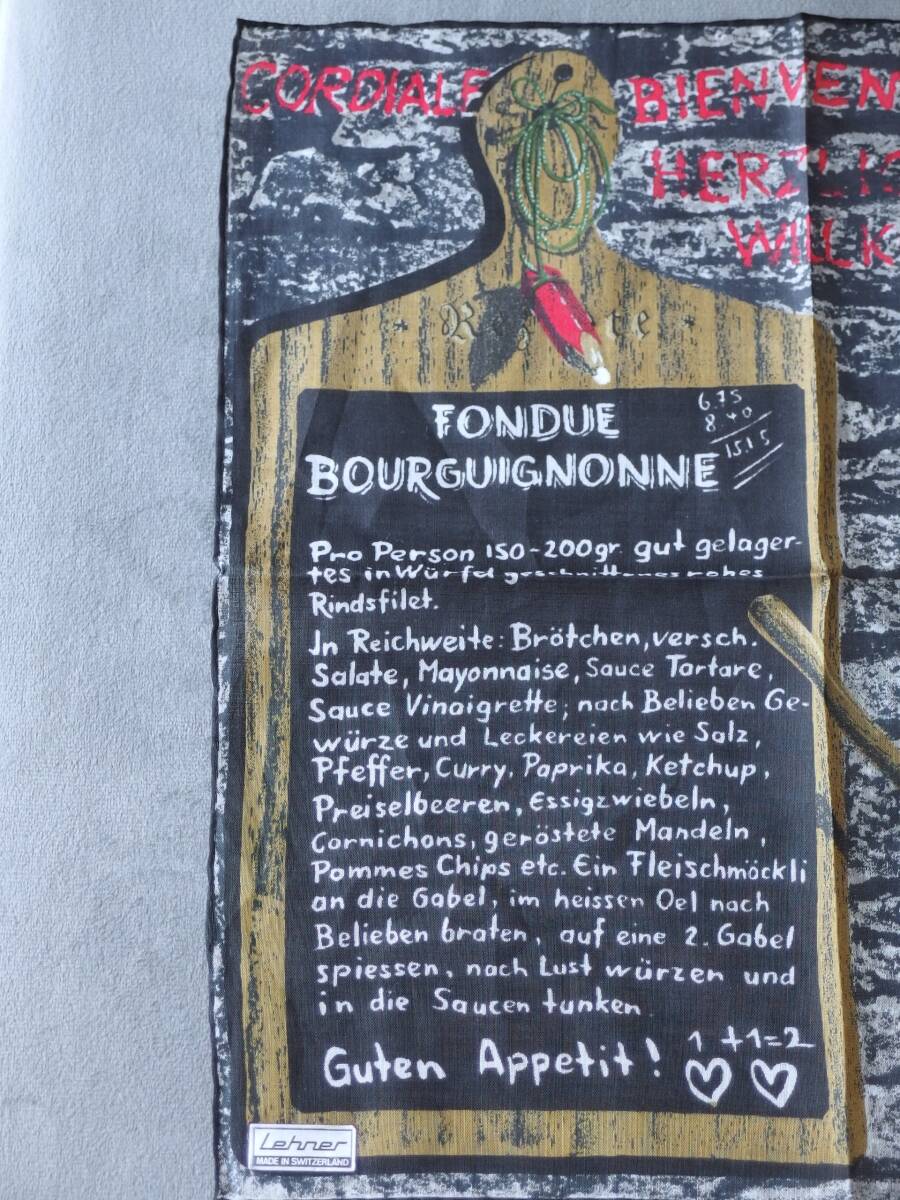 CORDIALE
BIENVEN
HERZLIC
WILLK
FONDUE
BOURGUIGNONNE
6.75
8.40
15.15
Pro Person 150-200gr. gut gelager-
tes in Würfel geschnittenes rohes
Rindsfilet.
In Reichweite: Brötchen, versch.
Salate, Mayonnaise, Sauce Tartare,
Sauce Vinaigrette; nach Belieben Ge-
würze und Leckereien wie Salz,
Pfeffer, Curry, Paprika, Ketchup,
Preiselbeeren, Essigzwiebeln,
Cornichons, geröstete Mandeln,
Pommes Chips etc. Ein Fleischmöckli
an die Gabel, im heissen Oel nach
Belieben braten, auf eine 2. Gabel
spiessen, nach Lust würzen und
in die Saucen tunken.
Guten Appetit! 1+1=2
Lehner
MADE IN SWITZERLAND